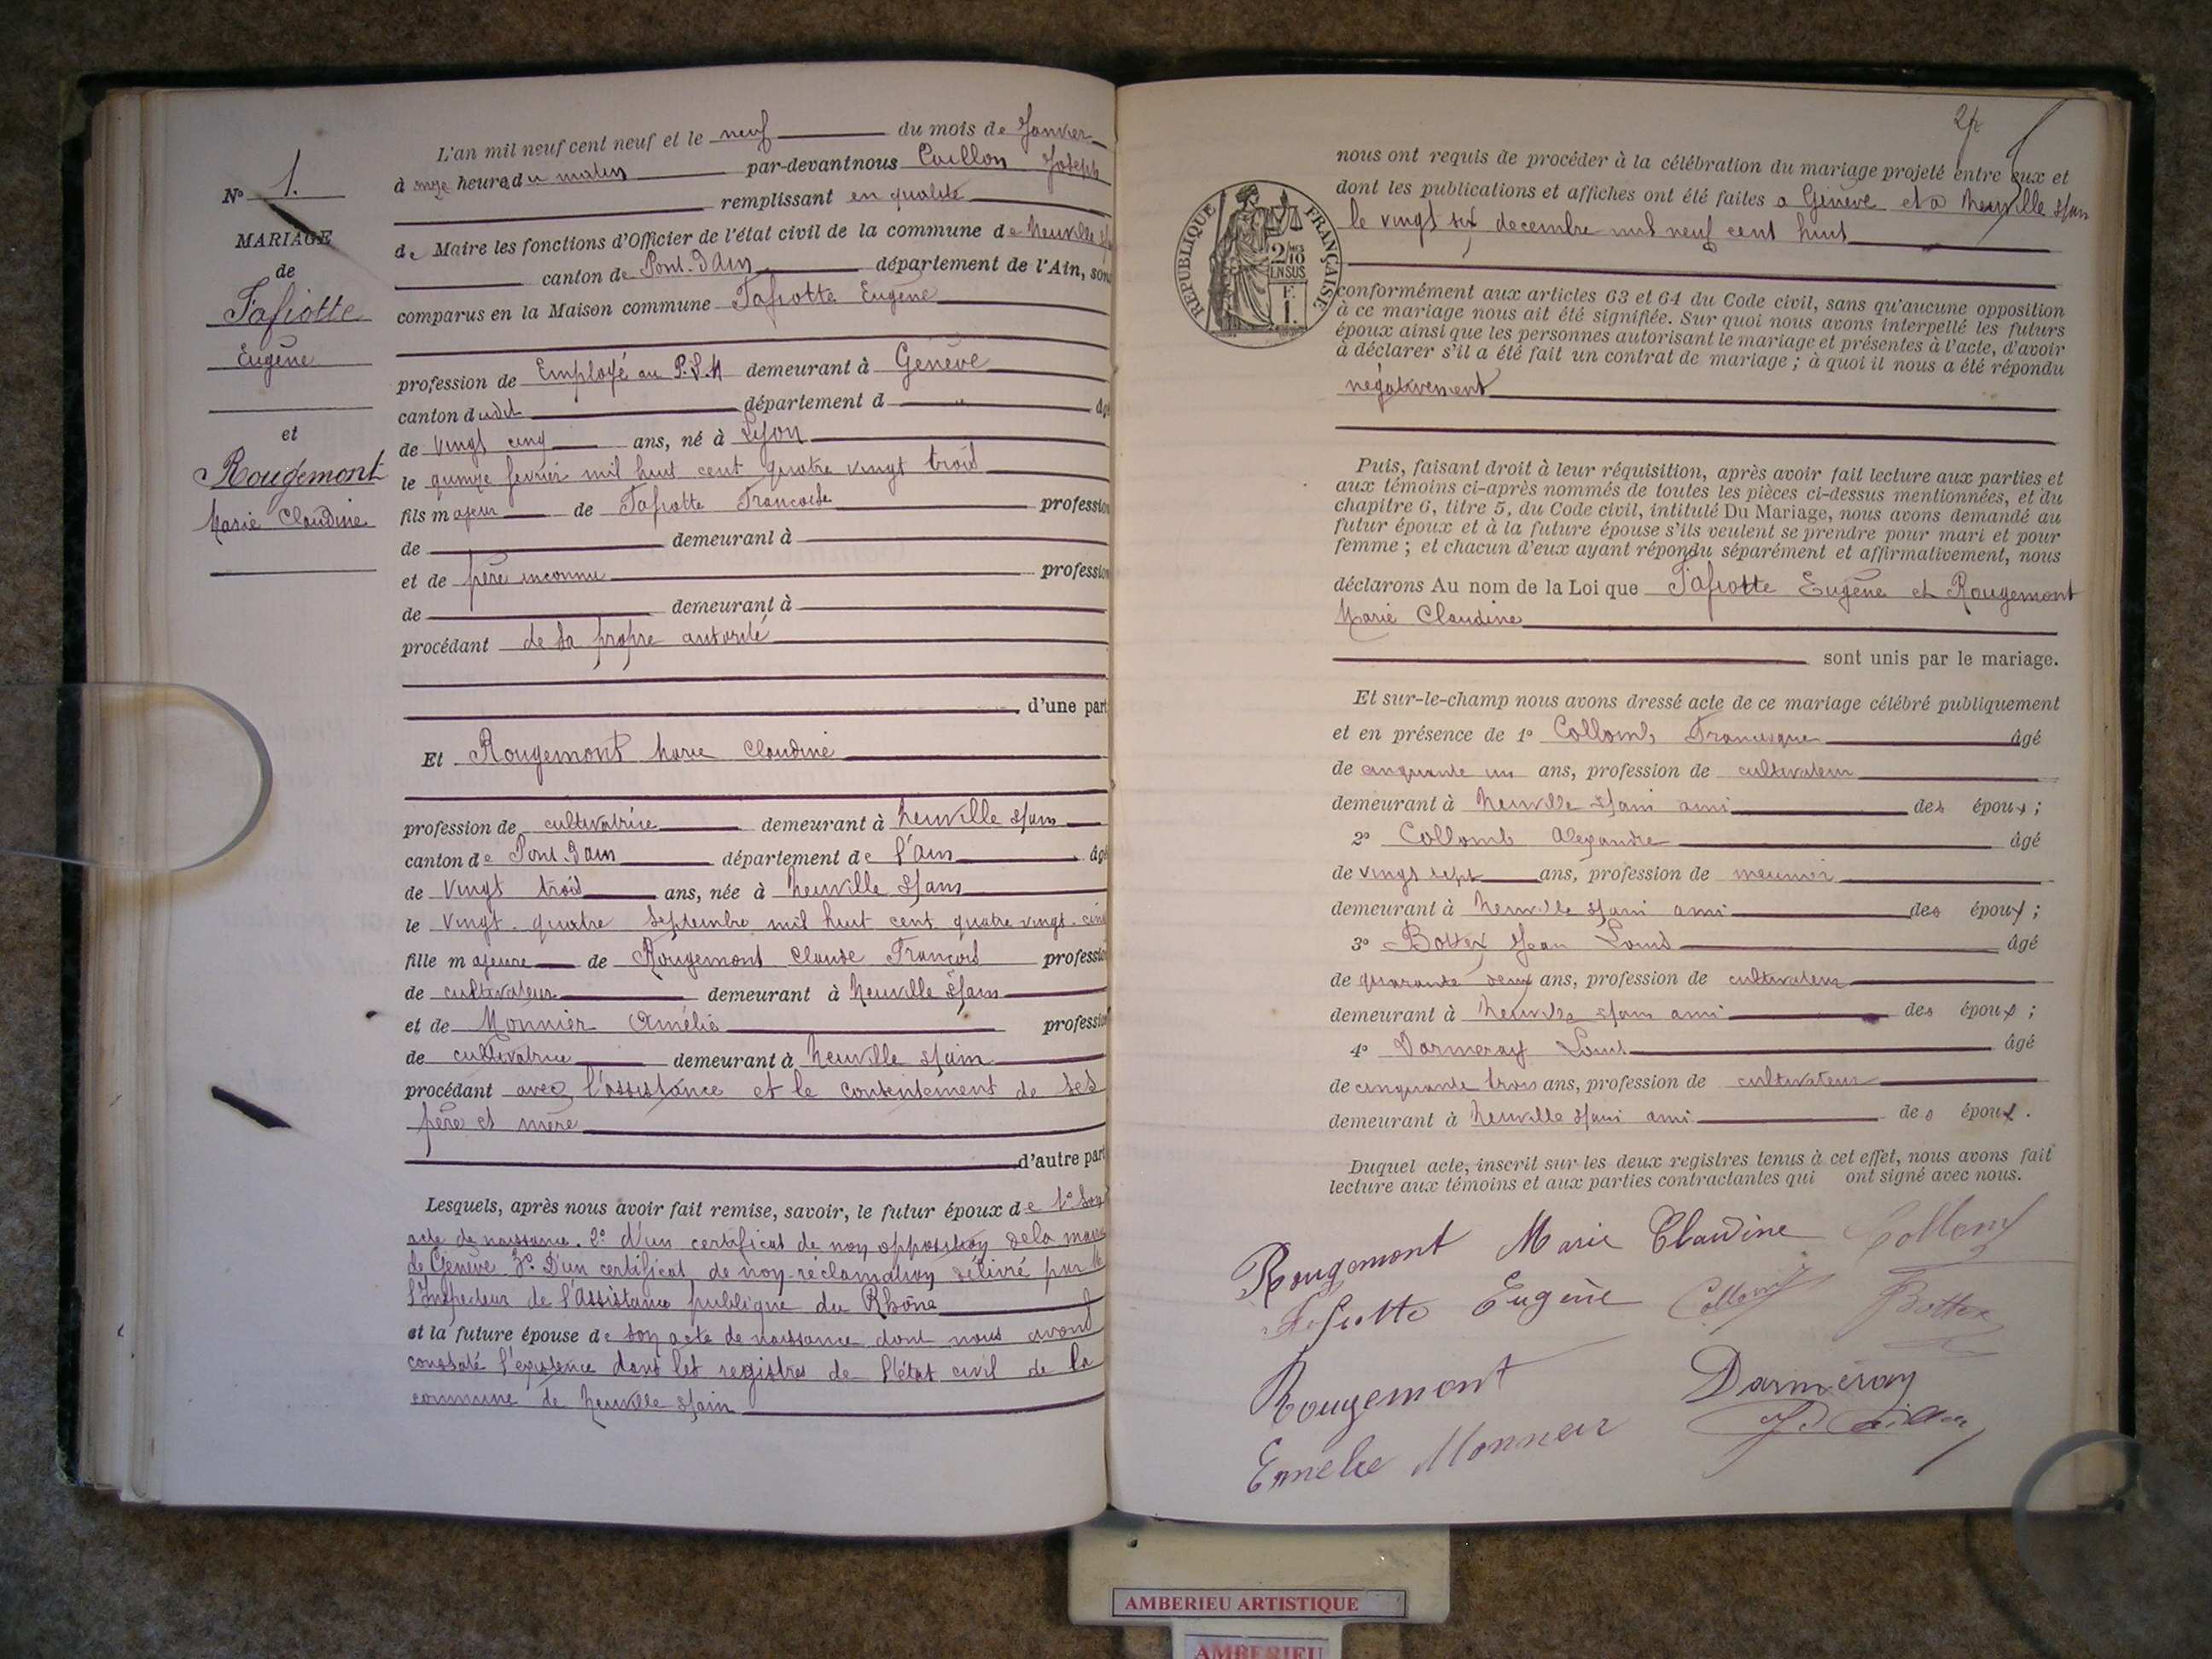 N° 1.
MARIAGE
de
Tapiotte
Eugène
et
Rougemont
Marie Claudine
L'an mil neuf cent neuf et le neuf du mois de Janvier
à onze heures du matin par-devant nous Caillon Joseph
remplissant en qualité
de Maire les fonctions d'Officier de l'état civil de la commune de Neuville s/
canton de Pont-d'Ain département de l'Ain, son
comparus en la Maison commune Tapiotte Eugène
profession de Employé au P.L.M demeurant à Genève
canton dudit département d " âgé
de vingt cinq ans, né à Lyon
le quinze février mil huit cent quatre vingt trois
fils majeur de Tapiotte Francoise profession
de demeurant à
et de père inconnu profession
de demeurant à
procédant de sa propre autorité
d'une part
Et Rougemont Marie Claudine
profession de cultivatrice demeurant à Neuville s/ain
canton de Pont-d'Ain département de l'Ain âgé
de vingt trois ans, née à Neuville s/ain
le vingt-quatre septembre mil huit cent quatre vingt-cinq
fille majeure de Rougemont Claude François profession
de cultivateur demeurant à Neuville s/ain
et de Monnier Amélie profession
de cultivatrice demeurant à Neuville s/ain
procédant avec l'assistance et le consentement de ses
père et mère
d'autre part
Lesquels, après nous avoir fait remise, savoir, le futur époux de 1° son
acte de naissance. 2° d'un certificat de non opposition de la mairie
de Genève 3° D'un certificat de non-réclamation délivré par M
l'Inspecteur de l'Assistance publique du Rhône
et la future épouse de son acte de naissance dont nous avons
constaté l'existence dans les registres de l'état civil de la
commune de Neuville s/ain
2
REPUBLIQUE FRANÇAISE
2/10
EN SUS
F.
1.
nous ont requis de procéder à la célébration du mariage projeté entre eux et
dont les publications et affiches ont été faites à Genève et à Neuville s/ain
le vingt six decembre mil neuf cent huit
conformément aux articles 63 et 64 du Code civil, sans qu'aucune opposition
à ce mariage nous ait été signifiée. Sur quoi nous avons interpellé les futurs
époux ainsi que les personnes autorisant le mariage et présentes à l'acte, d'avoir
à déclarer s'il a été fait un contrat de mariage ; à quoi il nous a été répondu
négativement
Puis, faisant droit à leur réquisition, après avoir fait lecture aux parties et
aux témoins ci-après nommés de toutes les pièces ci-dessus mentionnées, et du
chapitre 6, titre 5, du Code civil, intitulé Du Mariage, nous avons demandé au
futur époux et à la future épouse s'ils veulent se prendre pour mari et pour
femme ; et chacun d'eux ayant répondu séparément et affirmativement, nous
déclarons Au nom de la Loi que Tapiotte Eugène et Rougemont
Marie Claudine
sont unis par le mariage.
Et sur-le-champ nous avons dressé acte de ce mariage célébré publiquement
et en présence de 1° Collomb Francisque âgé
de cinquante un ans, profession de cultivateur
demeurant à Neuville s/ain ami des époux ;
2° Collomb Alexandre âgé
de vingt sept ans, profession de meunier
demeurant à Neuville s/ain ami des époux ;
3° Bottex Jean Louis âgé
de quarante deux ans, profession de cultivateur
demeurant à Neuville s/ain ami des époux ;
4° Darmeray Louis âgé
de cinquante trois ans, profession de cultivateur
demeurant à Neuville s/ain ami des époux.
Duquel acte, inscrit sur les deux registres tenus à cet effet, nous avons fait
lecture aux témoins et aux parties contractantes qui ont signé avec nous.
Rougemont Marie Claudine Collomb
Tapiotte Eugène Collomb Bottex
Rougemont Darmeray
Emelie Monnier J. Caillon
AMBERIEU ARTISTIQUE
AMBERIEU